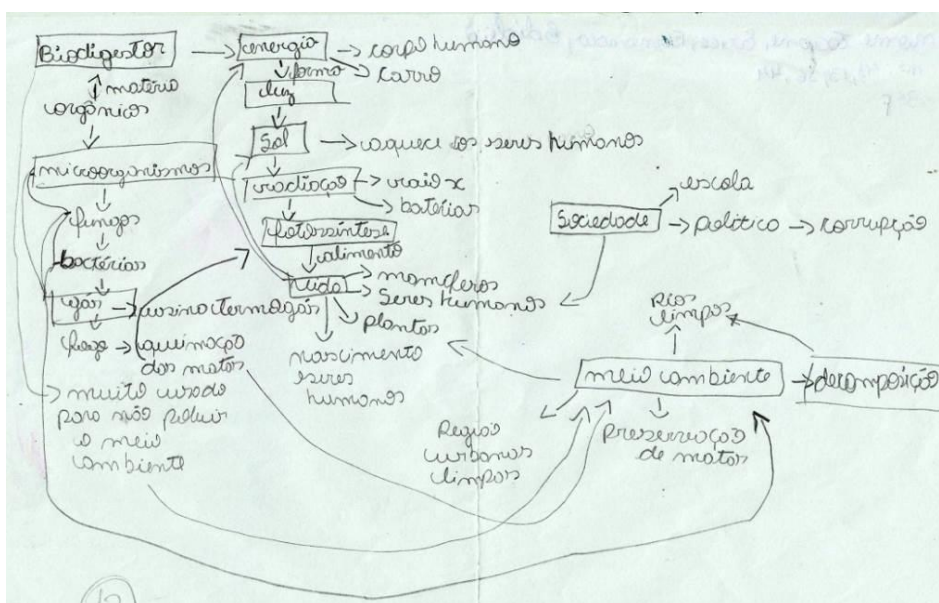 Biodigestor
energia
corpo humano
carro
forma
luz
matéria
orgânica
Sol
aquece os seres humanos
microorganismos
radiação
raio x
batérias
fungos
fotossíntese
alimento
bactérias
vida
mamíferos
Seres humanos
plantas
gás
usina termogás
fogo
queimação
das matas
nascimento
seres
humanos
muito usado
para não poluir
o meio
ambiente
Sociedade
escola
político
corrupção
Rios
limpos
meio ambiente
decomposição
Região
urbanas
limpas
Preservação
de matas